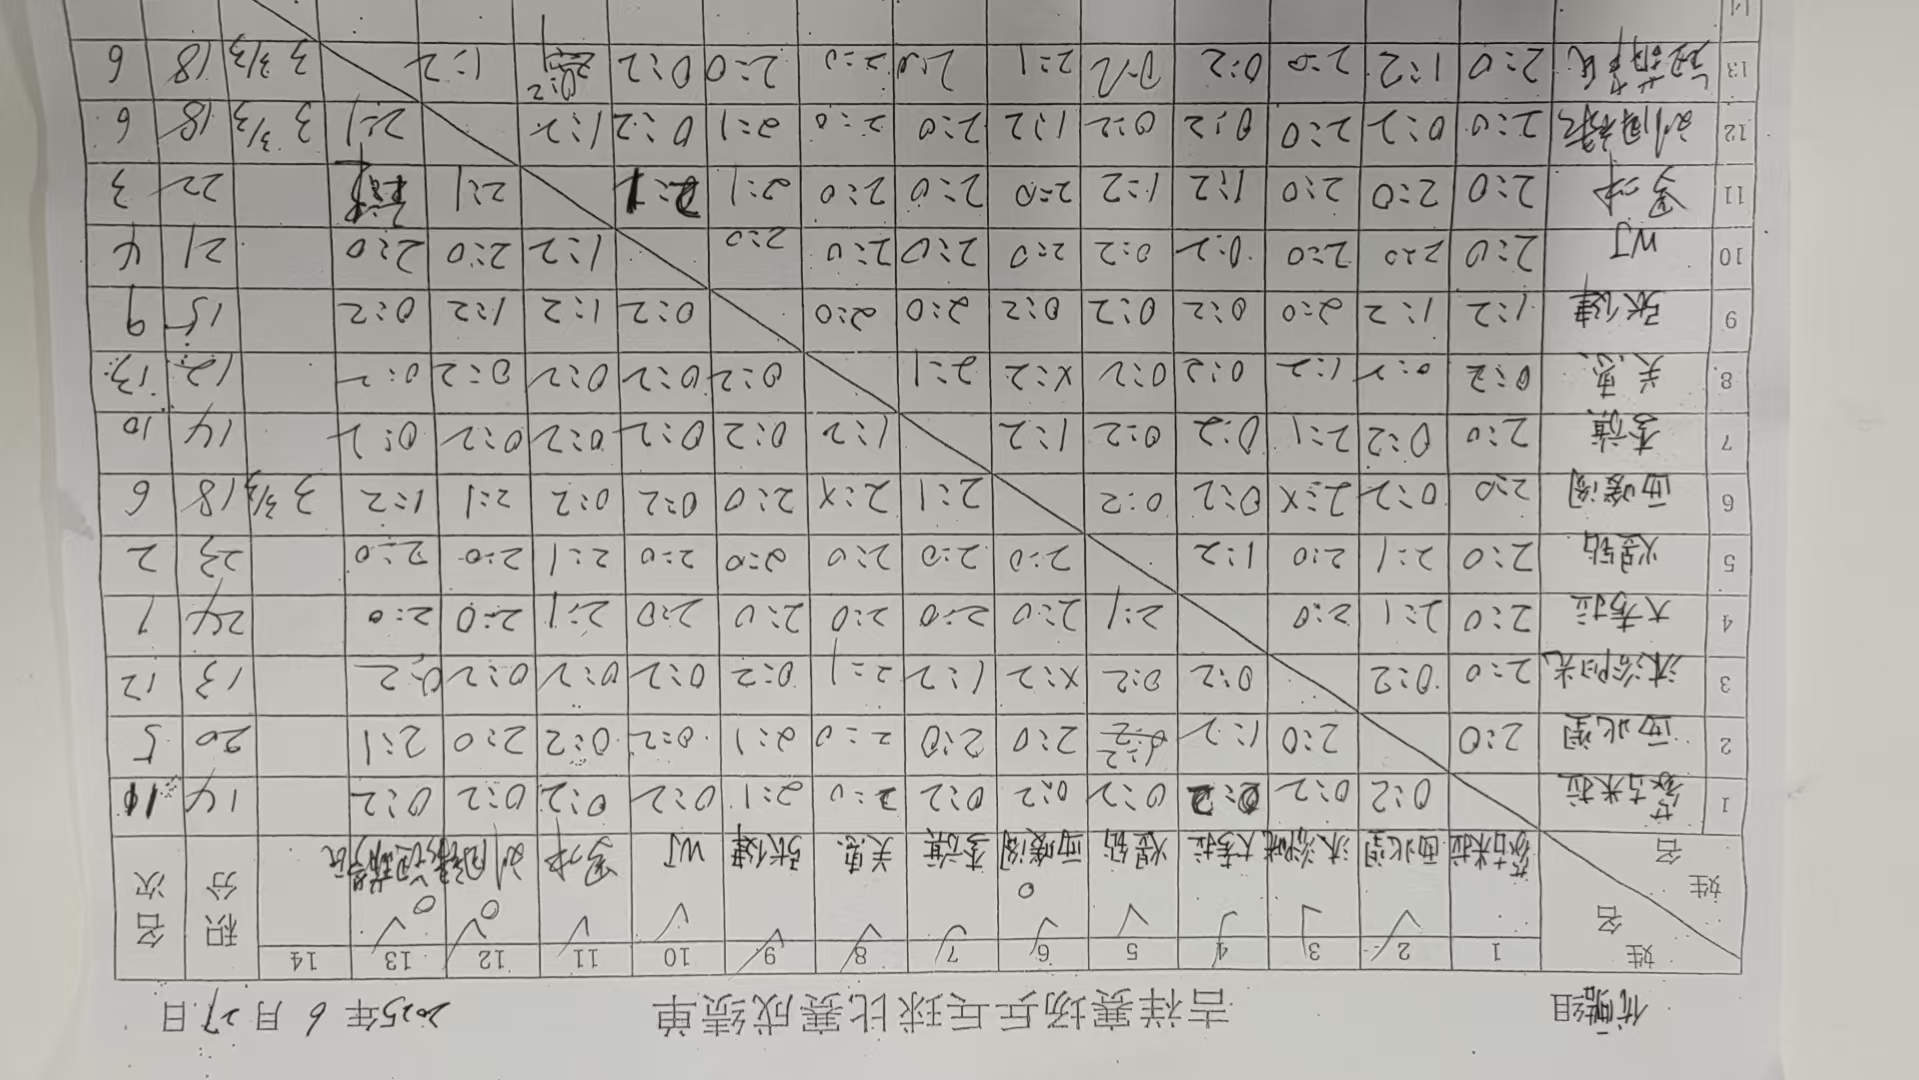 组 吉祥赛场乒乓球比赛成绩单 2025年6月27日
姓名 姓名 1 2 3 4 5 6 7 8 9 10 11 12 13 14 积分 名次
茶古米拉 西北望 沐浴阳光 大麦拉 煜钻 西峻阁 李旗 关思 张健 WJ 罗冲
1 茶古米拉 0:2 0:2 0:2 0:2 0:2 0:2 2=0 2:1 0:2 0:2 0:2 0:2 14 11
2 西北望 2:0 2:0 1:2 2:0 2:0 2=0 2:1 0:2 0:2 2:0 2:1 20 5
3 沐浴阳光 2=0 0:2 0:2 0:2 x:2 1:2 2=1 0:2 0:2 0:2 0:2 0:2 13 12
4 大麦拉 2:0 2:1 2:0 2:1 2:0 2=0 2:0 2:0 2:0 2:1 2=0 2=0 24 1
5 煜钻 2:0 2:1 2:0 1:2 2=0 2=0 2:0 2:0 2=0 2=1 2=0 2=0 23 2
6 2:0 0:2 2=x 0:2 0:2 2=1 2=x 2:0 0:2 0:2 2:1 1:2 3 3/3 18 6
7 李旗 2:0 0:2 2=1 0:2 0:2 1:2 1:2 0:2 0:2 0:2 0:2 0:2 14 10
8 关思 0:2 0:2 1:2 0:2 0:2 x:2 2=1 0:2 0:2 0:2 0:2 0:2 12 13
9 张健 1:2 1:2 2=0 0:2 0:2 0:2 2:0 2:0 0:2 1:2 1:2 0:2 15 9
10 WJ 2:0 2=0 2=0 0:2 0:2 2:0 2:0 2:0 2:0 1:2 2:0 2:0 21 4
11 罗冲 2:0 2:0 2:0 1:2 1:2 2=0 2:0 2:0 2:1 2:1 22 3
12 2:0 0:2 2:0 0:2 0:2 1:2 2:0 2=0 2=1 0:2 1:2 2=1 3 3/3 18 6
13 2:0 1:2 2=0 0:2 0:2 2=1 2=0 2=0 2=0 0:2 1:2 3 3/3 18 6
14